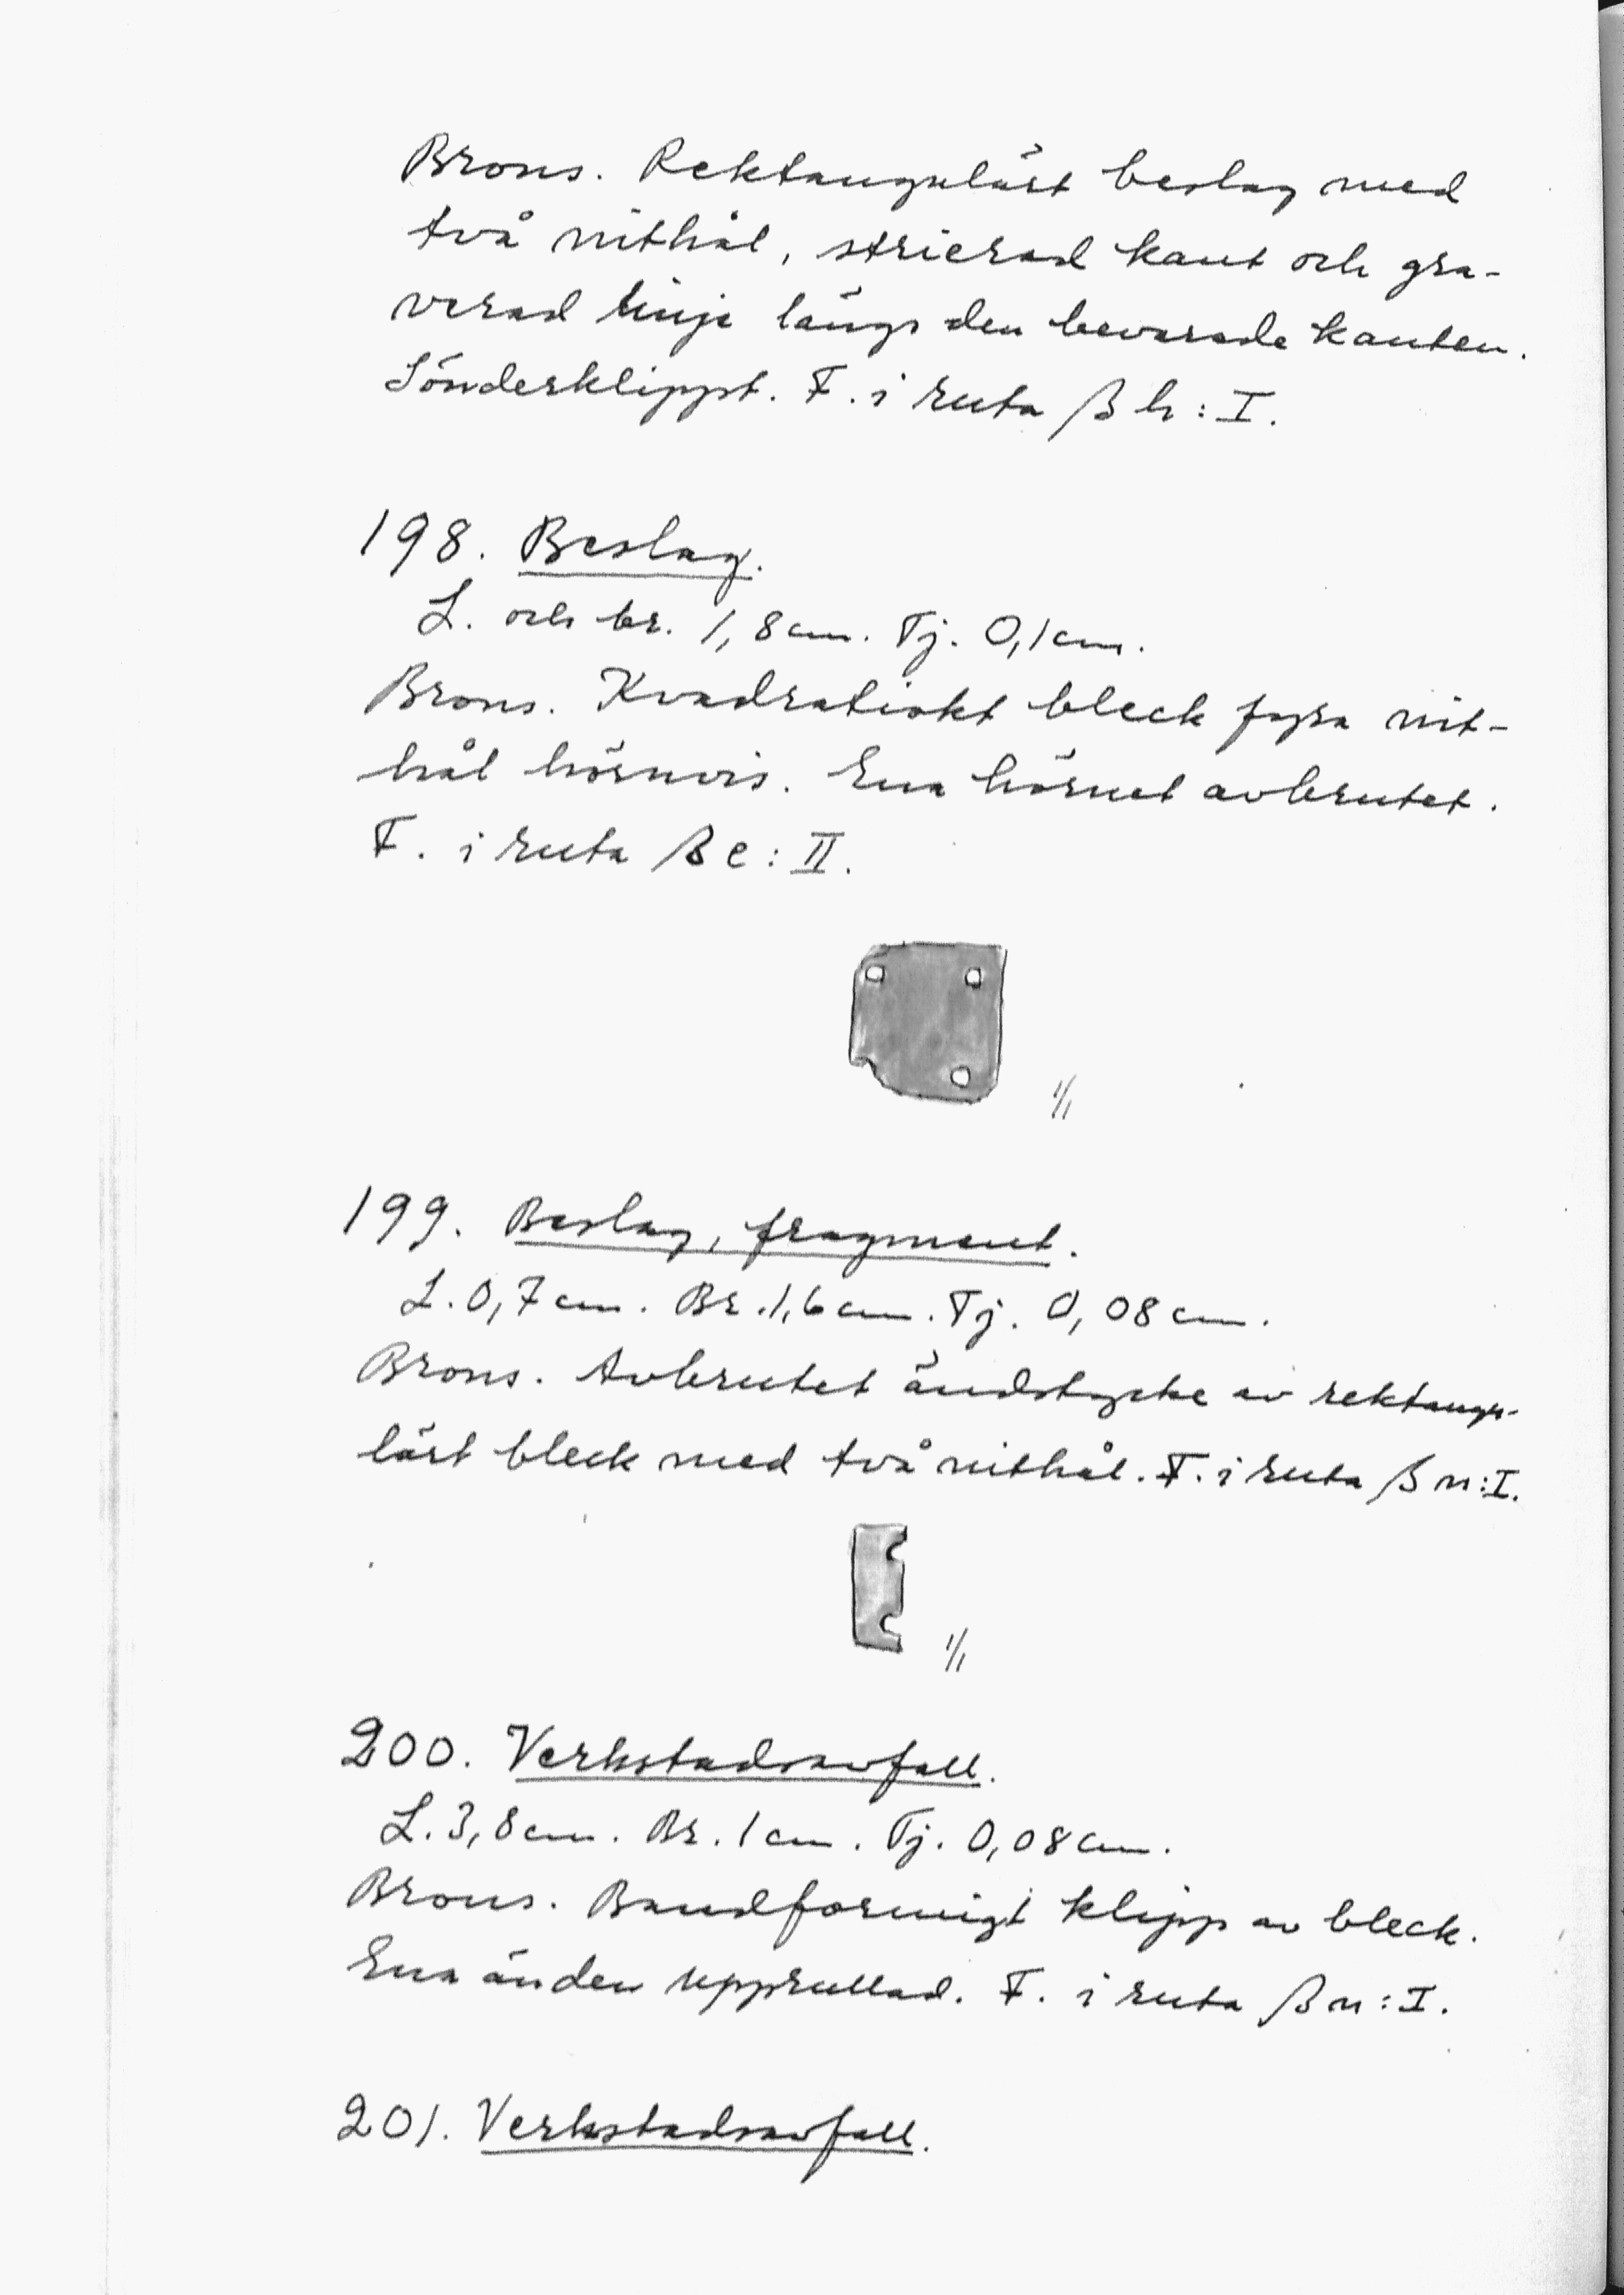 Brons. Rektangulärt beslag med
två nithål, strierad kant och gra-
verad linje längs den bevarade kanten.
Sönderklippt. F. i ruta β h : I.
198. Beslag.
L. och br. 1,8 cm. Tj. 0,1 cm.
Brons. Kvadratiskt bleck fyra nit-
hål hörnvis. Ena hörnet avbrutet.
F. i ruta β e : II.
1/1
199. Beslag, fragment.
L. 0,7 cm. Br. 1,6 cm. Tj. 0,08 cm.
Brons. Avbrutet ändstycke av rektangu-
lärt bleck med två nithål. F. i ruta β n : I.
1/1
200. Verkstadsavfall.
L. 3,8 cm. Br. 1 cm. Tj. 0,08 cm.
Brons. Bandformigt klipp av bleck.
Ena änden upprullad. F. i ruta β n : I.
201. Verkstadsavfall.